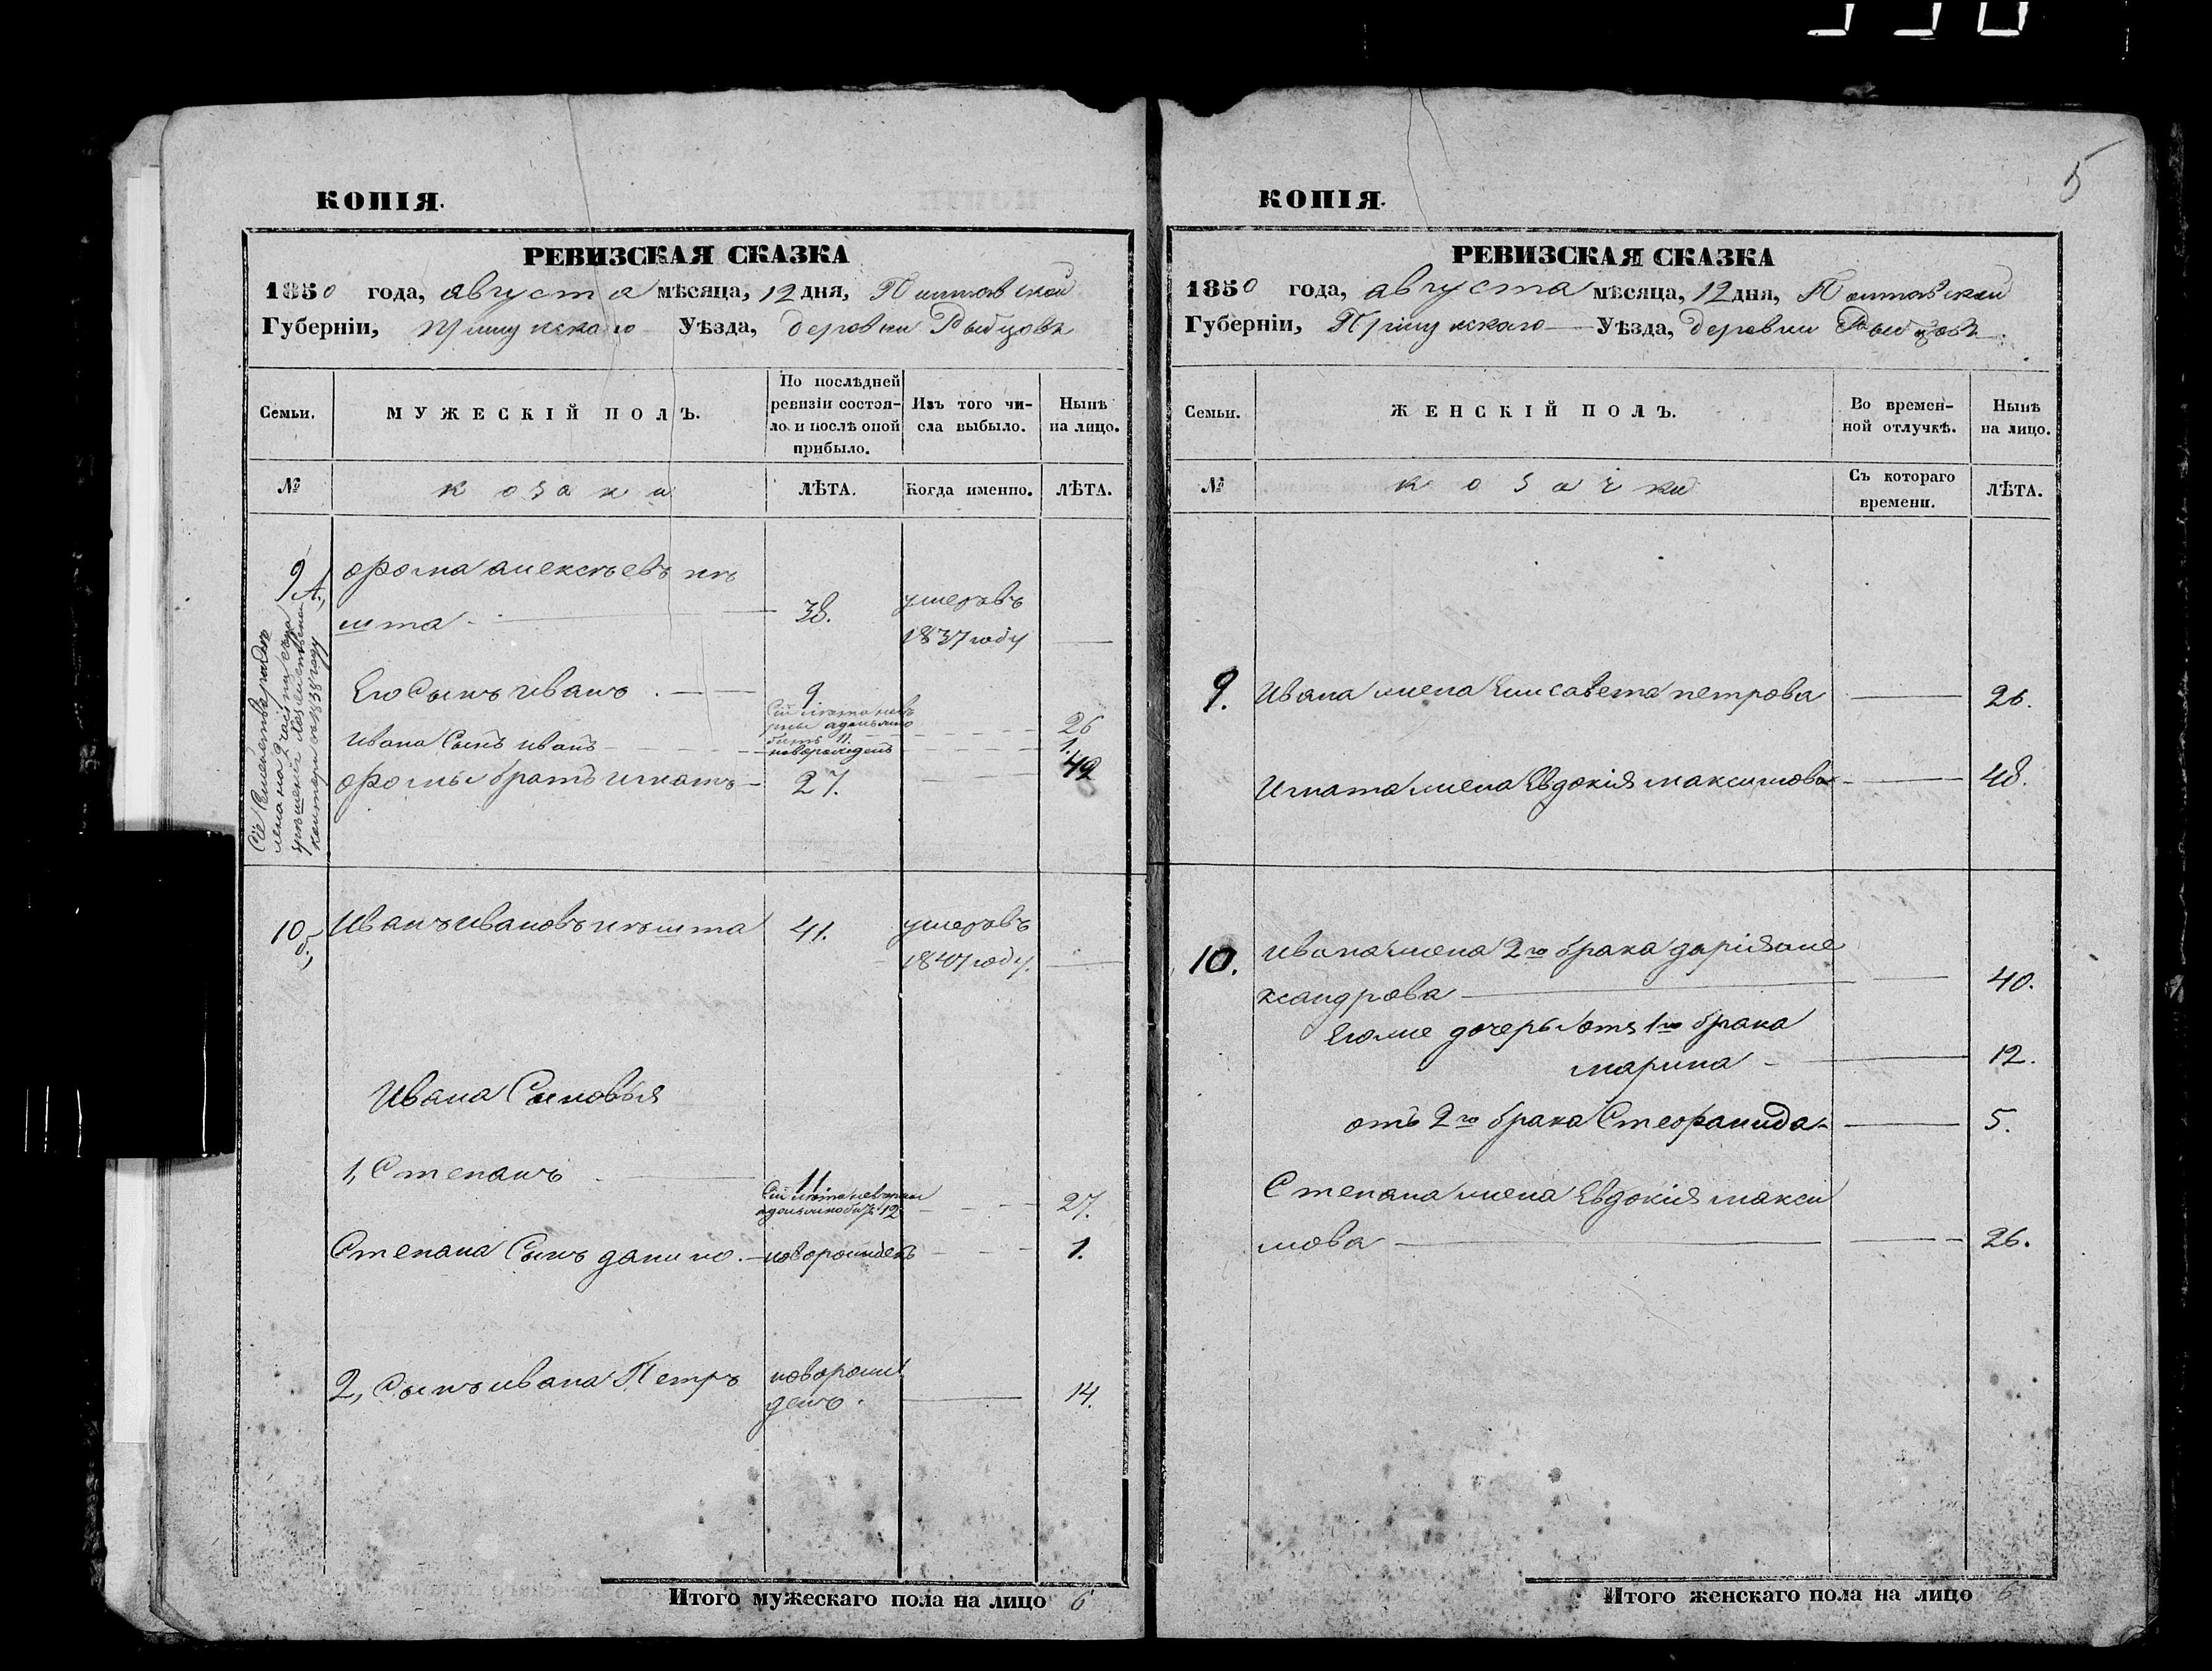 КОПІЯ.
РЕВИЗСКАЯ СКАЗКА
1850 года, августа мѣсяца, 12 дня, Полтавской
Губерніи, Прилукского Уѣзда, деревни Рыбцовъ
Семьи.
МУЖЕСКІЙ ПОЛЪ.
По послѣдней
ревизіи состоя-
ло и послѣ оной
прибыло.
Изъ того чи-
сла выбыло.
Нынѣ
на лицо.
№
козаки
ЛѢТА.
Когда именно.
ЛѢТА.
9
Фома алексѣевъ
38.
умеръ въ
1837 году
Сіе Семейство
1838 году
Его Сынъ иванъ
9
Сіи лѣта невѣ
рны а должно
быть 11.
26
Ивана Сынъ иванъ
новорожденъ
1.
Фомы братъ игнатъ
27.
42
10
Иванъ ивановъ
41.
умеръ въ
1847 году.
Ивана Сыновья
1, Степанъ
11.
Сіи лѣта невѣрны
а должно быть 12
27.
Степана Сынъ данило
новорожденъ
1.
2, Сынъ ивана Петръ
новорож
денъ.
14.
Итого мужескаго пола на лицо 6
5
КОПІЯ.
РЕВИЗСКАЯ СКАЗКА
1850 года, августа мѣсяца, 12 дня, Полтавской
Губерніи, Прилукского Уѣзда, деревни Рыбцовъ
Семьи.
ЖЕНСКІЙ ПОЛЪ.
Во времен-
ной отлучкѣ.
Нынѣ
на лицо.
№
козачки
Съ котораго
времени.
ЛѢТА.
9.
Ивана жена Елисавета петрова
26.
Игната жена Евдокія максимова
48.
10.
Ивана жена 2го брака дарія але
ксандрова
40.
Его же дочеры отъ 1го брака
марина
12.
отъ 2го брака Стефанида
5.
Степана жена Евдокія макси
мова
26.
Итого женскаго пола на лицо 6